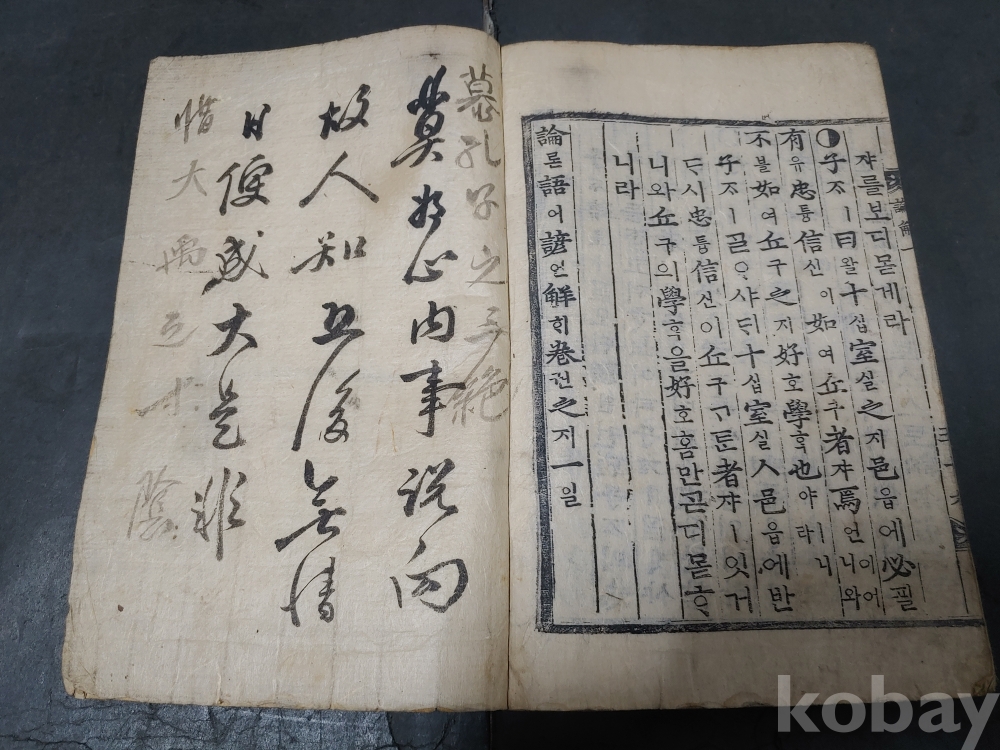 쟈를보디몯게라
◑子ᄌᆞㅣ曰왈十십室실之지邑읍에必필
有유忠튱信신이如여丘구者쟈焉언이어니와
不불如여丘구之지好호學ᄒᆞᆨ也야ㅣ니라
子ᄌᆞㅣᄀᆞᆯᄋᆞ샤ᄃᆡ十십室실人邑읍에반
ᄃᆞ시忠튱信신이丘구ᄀᆞᄐᆞᆫ者쟈ㅣ잇거
니와丘구의學ᄒᆞᆨ을好호홈만ᄀᆞᆮ디몯ᄒᆞ
니라
論론語어諺언解ᄒᆡ卷권之지一일
慕孔子之三絶
莫將心內事說向
故人知恐後無情
日便成大是非
惜大禹之寸陰
kobay